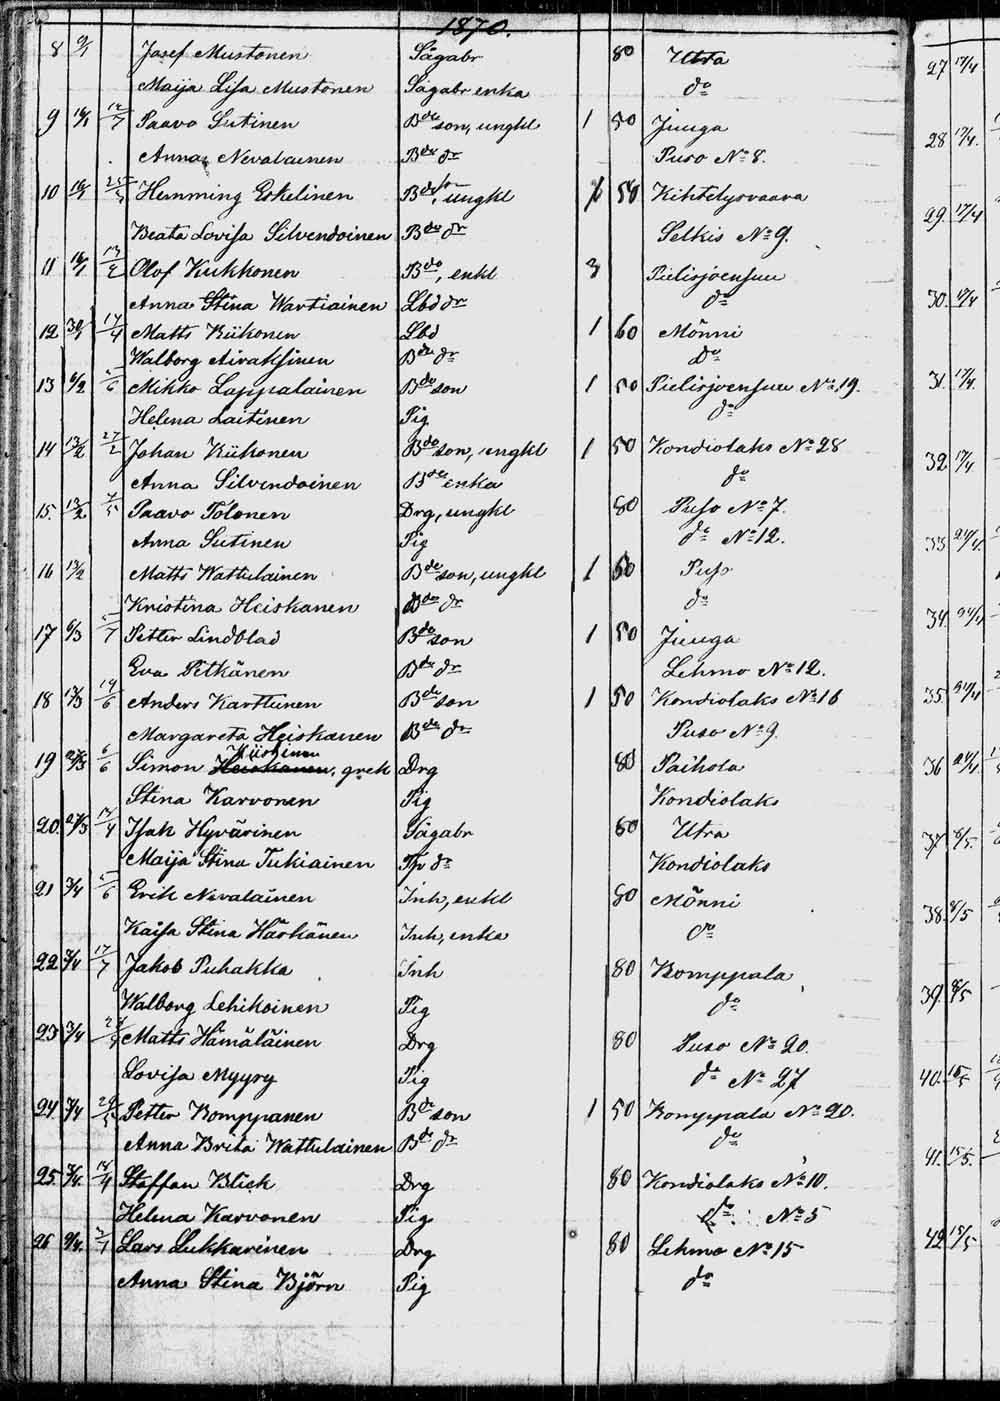 1870.
8 9/1 Josef Mustonen Sågabr 80 Utra
Maija Lisa Mustonen Sågabr enka do
9 16/1 14/7 Paavo Sutinen Bde son, ungkl 1 50 Juuga
Anna Nevalainen Bde dr Puso No 8.
10 16/1 Hemming Eskelinen Bde, ungkl 50 Kihtelysvaara
Beata Lovisa Silvendoinen Bde dr Selkis No 9.
11 16/1 Olof Kukkonen Bde, enkl 3 Pielisjoensuu
Anna Stina Wartiainen Lbd dr do
12 30/1 17/4 Matts Kiikonen Lbd 1 60 Mönni
Walborg Airaksinen Bde dr do
13 6/2 5/6 Mikko Lappalainen Bde son 1 50 Pielisjoensuu No 19.
Helena Laitinen Pig do
14 13/2 27/2 Johan Kiikonen Bde son, ungkl 1 50 Kondiolaks No 28
Anna Silvendoinen Bde enka do
15. 13/2 7/5 Paavo Tolonen Drg, ungkl 80 Puso No 7.
Anna Sutinen Pig do No 12.
16 13/2 Matts Wattulainen Bde son, ungkl 1 50 Puso
Kristina Heiskanen Bde dr do
17 6/3 5/7 Petter Lindblad Bde son 1 50 Juuga
Eva Pitkänen Bde dr Lehmo No 12.
18 13/3 19/6 Anders Karttunen Bde son 1 50 Kondiolaks No 16
Margareta Heiskanen Bde dr Puso No 9.
19 27/3 6/6 Simon Heiskanen, grek Drg 80 Paihola
Stina Karvonen Pig Kondiolaks
20. 27/3 17/4 Isak Hyvärinen Sågabr 80 Utra
Maija Stina Tukiainen Tp dr Kondiolaks
21 3/4 5/6 Erik Nevalainen Inh, enkl 80 Mönni
Kaisa Stina Härkänen Inh, enka do
22 3/4 17/7 Jakob Puhakka Inh 80 Komppala
Walborg Lehikoinen Pig do
23 3/4 Matts Hämäläinen Drg 80 Puso No 20.
Lovisa Myyry Pig do No 27
24. 3/4 29/5 Petter Komppanen Bde son 1 50 Komppala No 20.
Anna Brita Wattulainen Bde dr do
25 3/4 18/4 Staffan Blick Drg 80 Kondiolaks No 10.
Helena Karvonen Pig do No 5
26 9/4 Lars Lukkarinen Drg 80 Lehmo No 15
Anna Stina Björn Pig do
27 17/4
28 17/4.
29. 17/4
30. 17/4
31. 17/4.
32. 17/4
33. 24/4.
34. 24/4
35. 24/4
36 24/4
37 8/5.
38. 8/5
39. 8/5
40. 15/5
41. 15/5.
42. 15/5